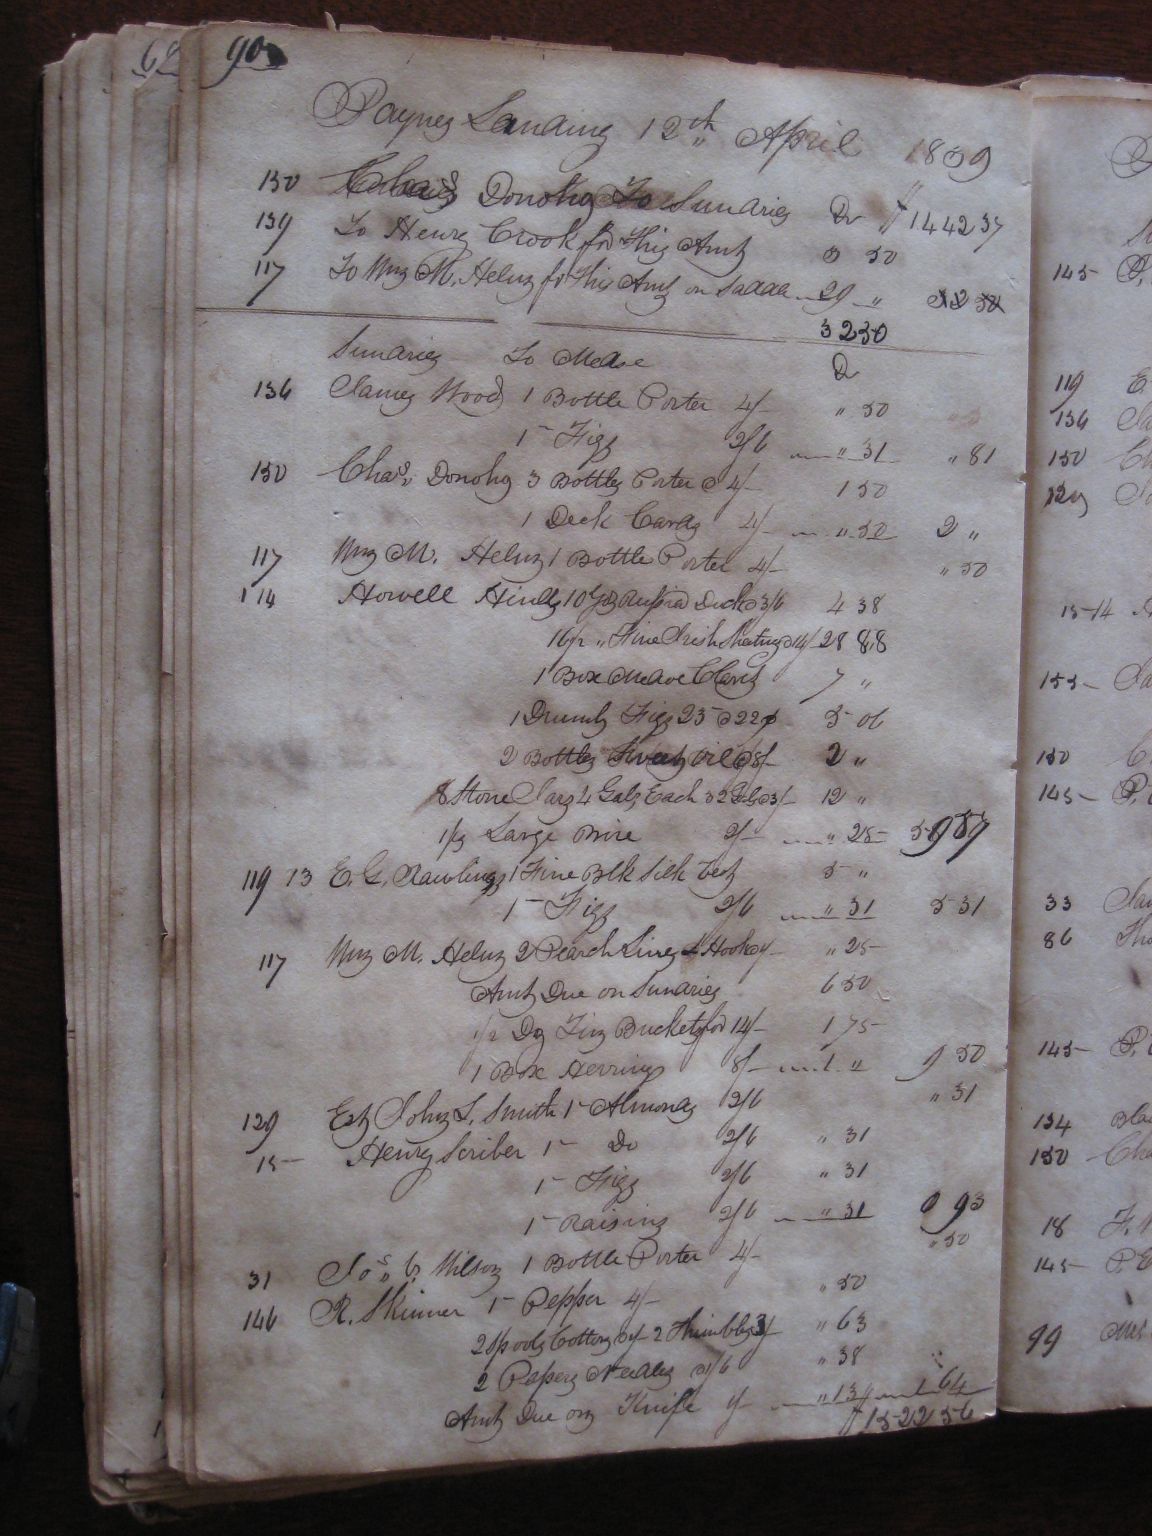 68
90
Paynes Landing 12th April 1839
150 Chas Donoho To Sundries Dr $1442 37
139 To Henry Crook for This Amt 3 50
117 To Wm M. Helm for This Amt on Saddle 29 " 32 50
3250
Sundries To Mdse Dr
136 James Wood 1 Bottle Porter 4/- " 50
1 - Figs 2/6 " 31 " 81
150 Chas. Donoho 3 Bottles Porter @ 4/- 1 50
1 Deck Cards 4/- " 50 2 "
117 Wm M. Helm 1 Bottle Porter 4/- " 50
114 Howell Hinds 10 Yds Russia Duck @ 3/6 4 38
" Fine Irish Sheeting 28 88
1 Box Claret 7 "
1 Drum Figs 23 @ 22¢ 5 06
2 Bottles Sweet Oil @ 8/- 2 "
8 Stone Jars 4 Gals Each 32 Gls @ 3/- 12 "
Large Wire 2/- " 25 59 57
119 13 E. G. Rawlings 1 Fine Blk Silk Vest 5 "
1 - Figs 2/6 " 31 5 31
117 Wm M. Helm 2 Pearch Lines & Hooks " 25
Amt Due on Sundries 6 50
1/2 Doz Tin Buckets for 14/- 1 75
1 Box Herrings 8/- 1 " 9 50
129 Est John S. Smith 1 - Almonds 2/6 " 31
15 Henry Scriber 1 - Do 2/6 " 31
1 - Figs 2/6 " 31
1 - Raisins 2/6 " 31 0 93
31 Jos. Wilson 1 Bottle Porter 4/- " 50
146 R. Skinner 1 - Pepper 4/- " 50
2 Spools Cotton 2 Thimbles " 63
2 Papers Needles 1/6 " 38
Amt Due on Knife 1/- " 13 1 64
$1522 56
145 P.
119 E
136 Ja
150 Ch
129
15-14
155 Ja
150 C
145 P.
33 Jam
86 Tho
145 P.
134 Bla
150 Cha
18 F.
145 P.E
99